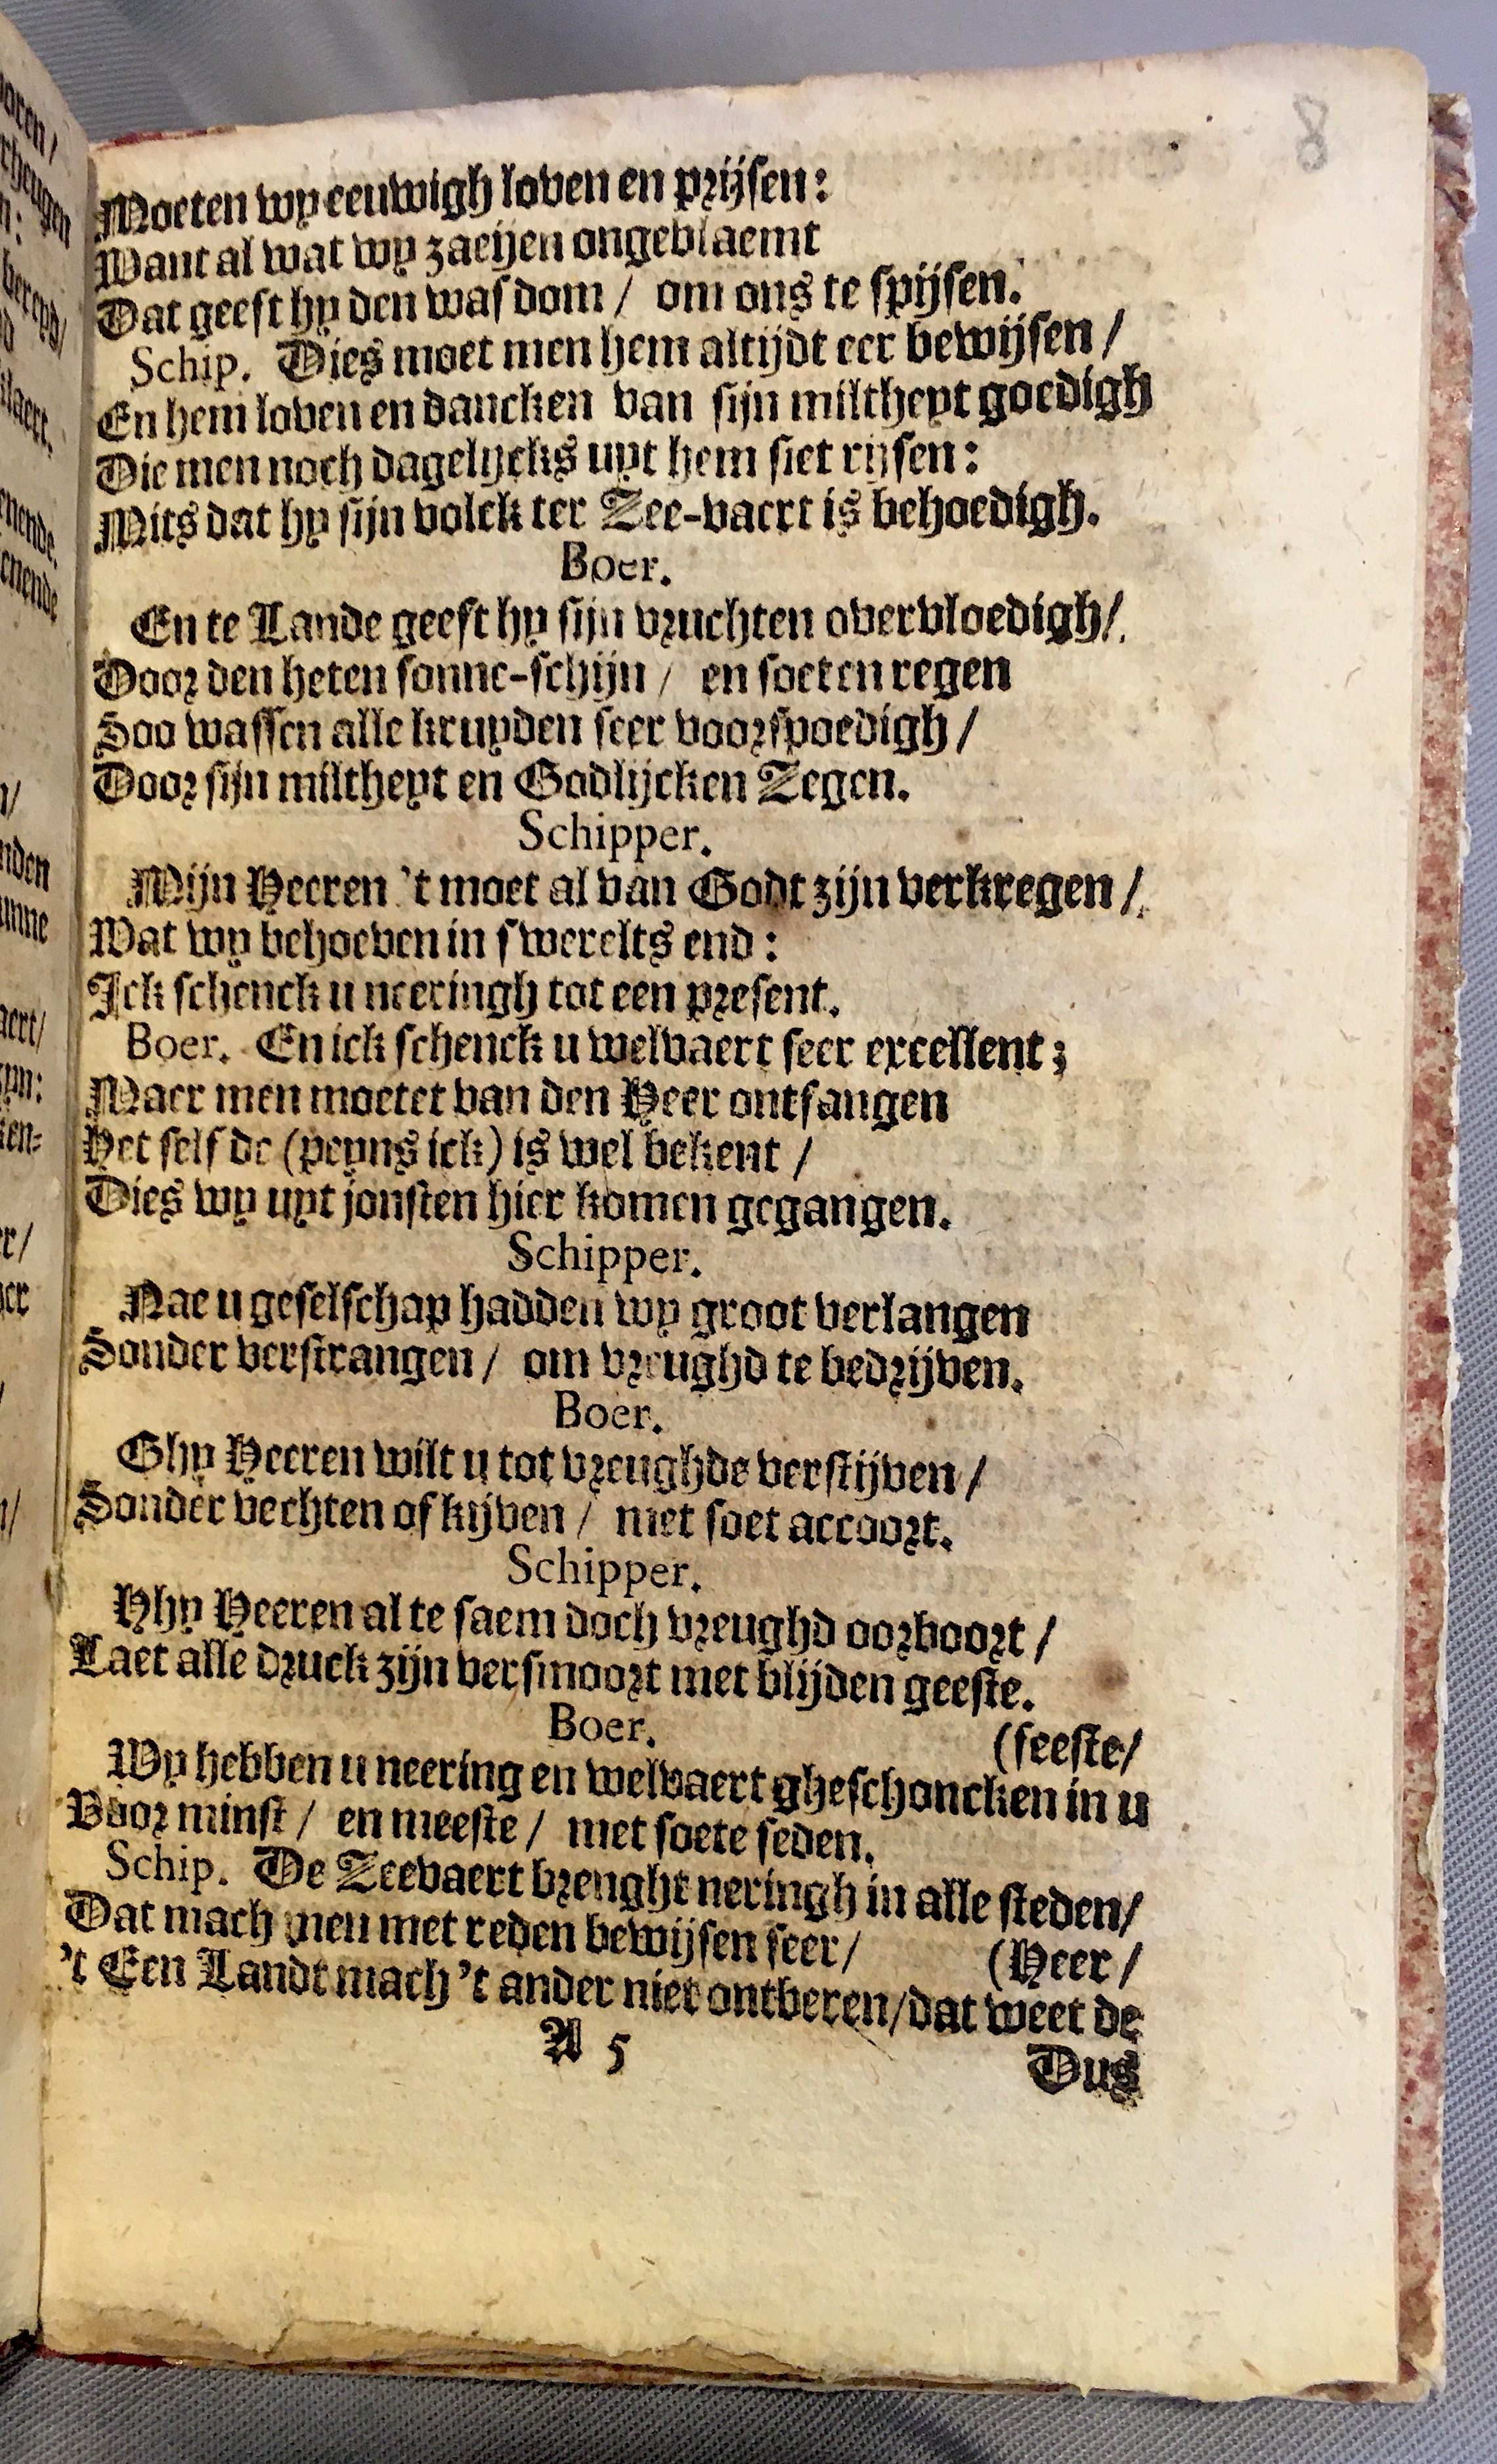 8
Moeten wy eeuwigh loven en prijsen:
Want al wat wy zaeijen ongeblaemt
Dat geeft hy den wasdom / om ons te spijsen.
Schip. Dies moet men hem altijdt eer bewijsen /
En hem loven en dancken van sijn miltheyt goedigh
Die men noch dagelijcks uyt hem siet rijsen:
Mits dat hy sijn volck ter Zee-vaert is behoedigh.
Boer.
En te Lande geeft hy sijn vruchten overvloedigh /
Door den heten sonne-schijn / en soeten regen
Soo wassen alle kruyden seer voorspoedigh /
Door sijn miltheyt en Godlijcken Zegen.
Schipper.
Mijn Heeren 't moet al van Godt zijn verkregen /
Wat wy behoeven in swerelts end:
Ick schenck u neeringh tot een present.
Boer. En ick schenck u welvaert seer excellent;
Maer men moetet van den Heer ontfangen
Het selfde (peyns ick) is wel bekent /
Dies wy uyt jonsten hier komen gegangen.
Schipper.
Nae u geselschap hadden wy groot verlangen
Sonder verstrangen / om vreughd te bedrijven.
Boer.
Ghy Heeren wilt u tot vreughde verstijven /
Sonder vechten of kijven / met soet accoort.
Schipper.
Hhy Heeren al te saem doch vreughd oorboort /
Laet alle druck zijn versmoort met blijden geeste.
Boer. (feeste/
Wy hebben u neering en welvaert gheschoncken in u
Voor minst / en meeste / met soete seden.
Schip. De Zeevaert brenght neringh in alle steden/
Dat mach men met reden bewijsen seer/ (Heer /
't Een Landt mach 't ander niet ontberen/dat weet de
A 5
Dus